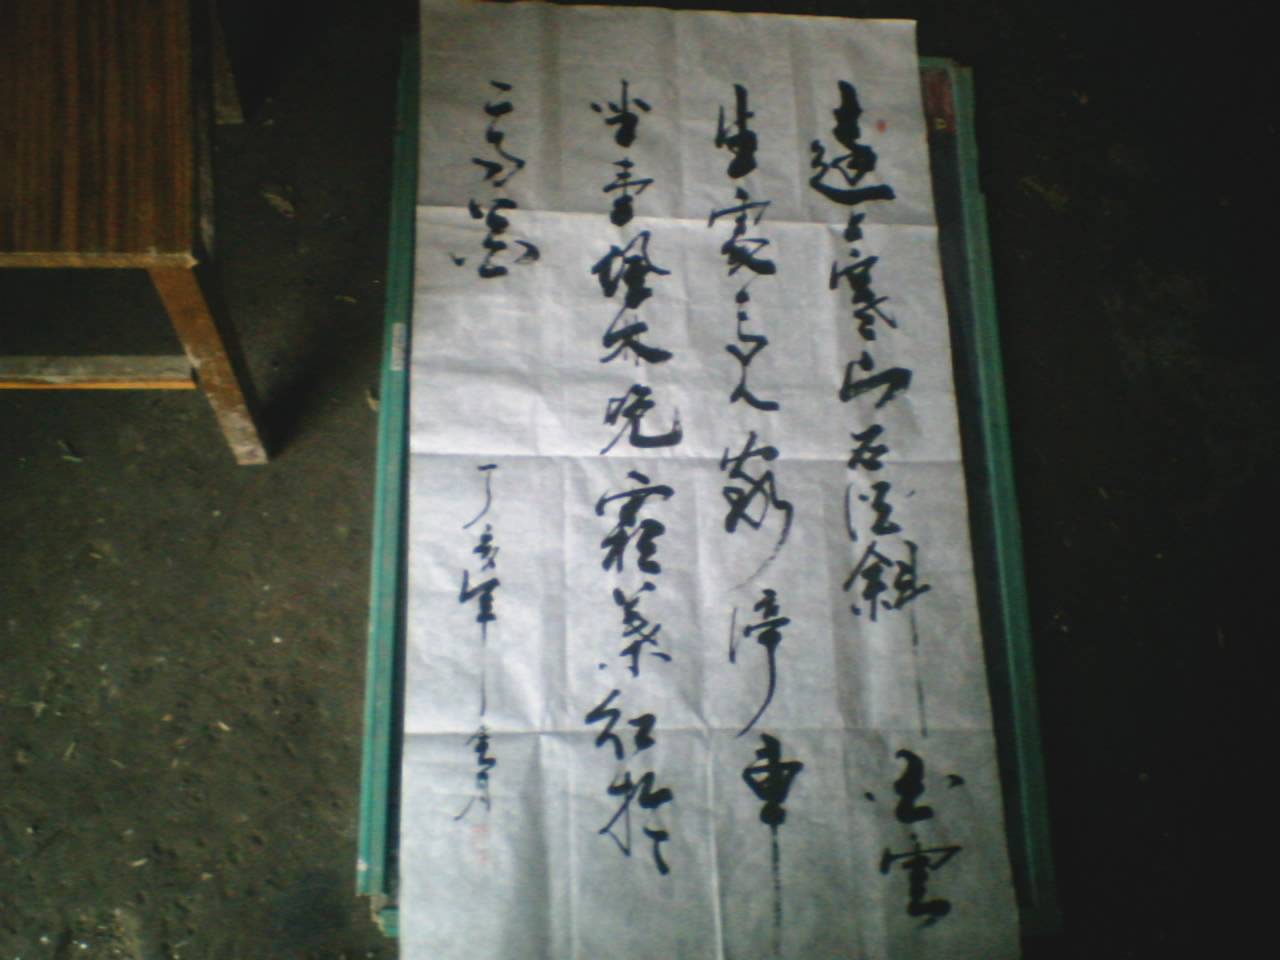 遠上寒山石徑斜白雲
生處有人家停車
坐愛楓林晚霜葉紅於
二月花
丁亥年